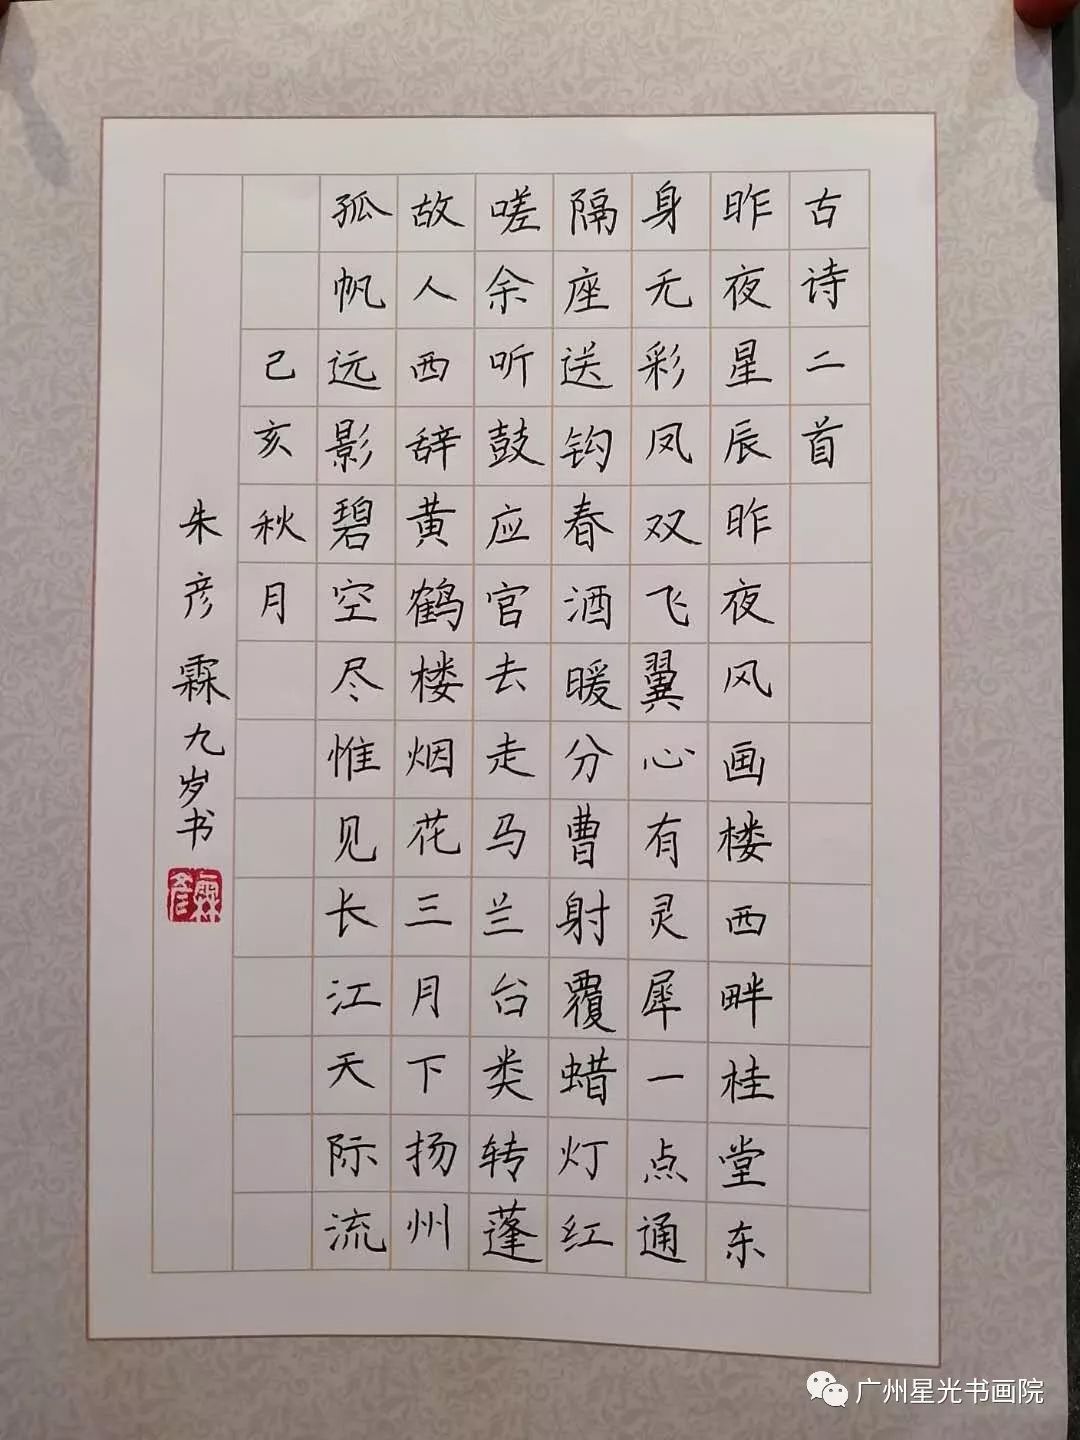 古诗二首
昨夜星辰昨夜风画楼西畔桂堂东
身无彩凤双飞翼心有灵犀一点通
隔座送钩春酒暖分曹射覆蜡灯红
嗟余听鼓应官去走马兰台类转蓬
故人西辞黄鹤楼烟花三月下扬州
孤帆远影碧空尽惟见长江天际流
己亥秋月
朱彦霖九岁书
彦霖
广州星光书画院